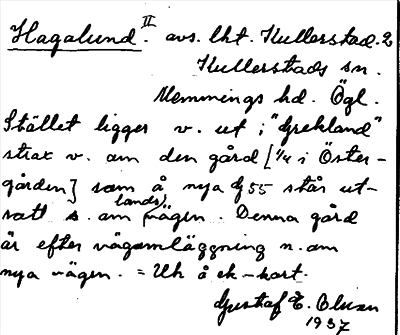 Hagalund. II avs. lht. Kullerstad. 2
Kullerstads sn.
Memmings hd. Ögl.
Stället ligger v. ut i "Grekland"
strax v. om den gård [1/4 i Öster-
gården] som å nya Gf 55 står ut-
satt s. om (lands)vägen. Denna gård
är efter vägomläggning n. om
nya vägen. = Uh å ek-kart.
Gustaf E. Olsson
1937